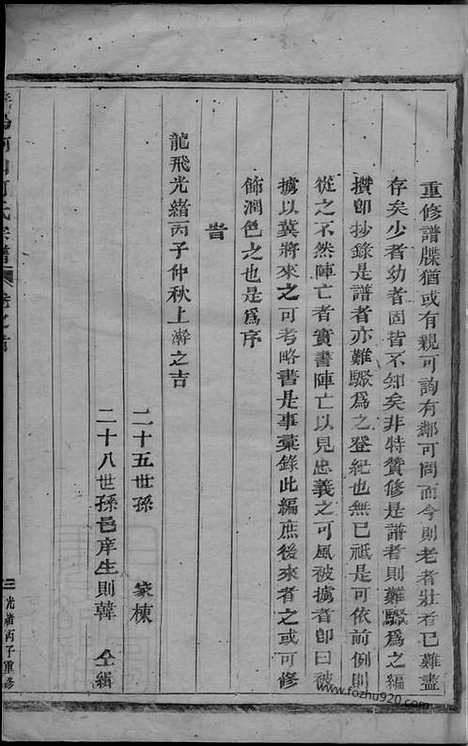 重修譜牒猶或有親可詢有鄰可問而今則老者壯者已難盡
存矣少者幼者固皆不知矣非特贊修是譜者則難驟為之編
攢卽抄錄是譜者亦難驟為之登紀也無已祗是可依前例則
從之不然陣亡者實書陣亡以見忠義之可風被擄者卽曰被
擄以冀將來之可考略書是事彙錄此編庶後來者之或可修
飾潤色之也是為序
旹
龍飛光緒丙子仲秋上澣之吉
二十五世孫 家棟
二十八世孫邑庠生則韓 仝緝
氏宗譜 卷之首
三 光緒丙子重修
www.fozhu920.com